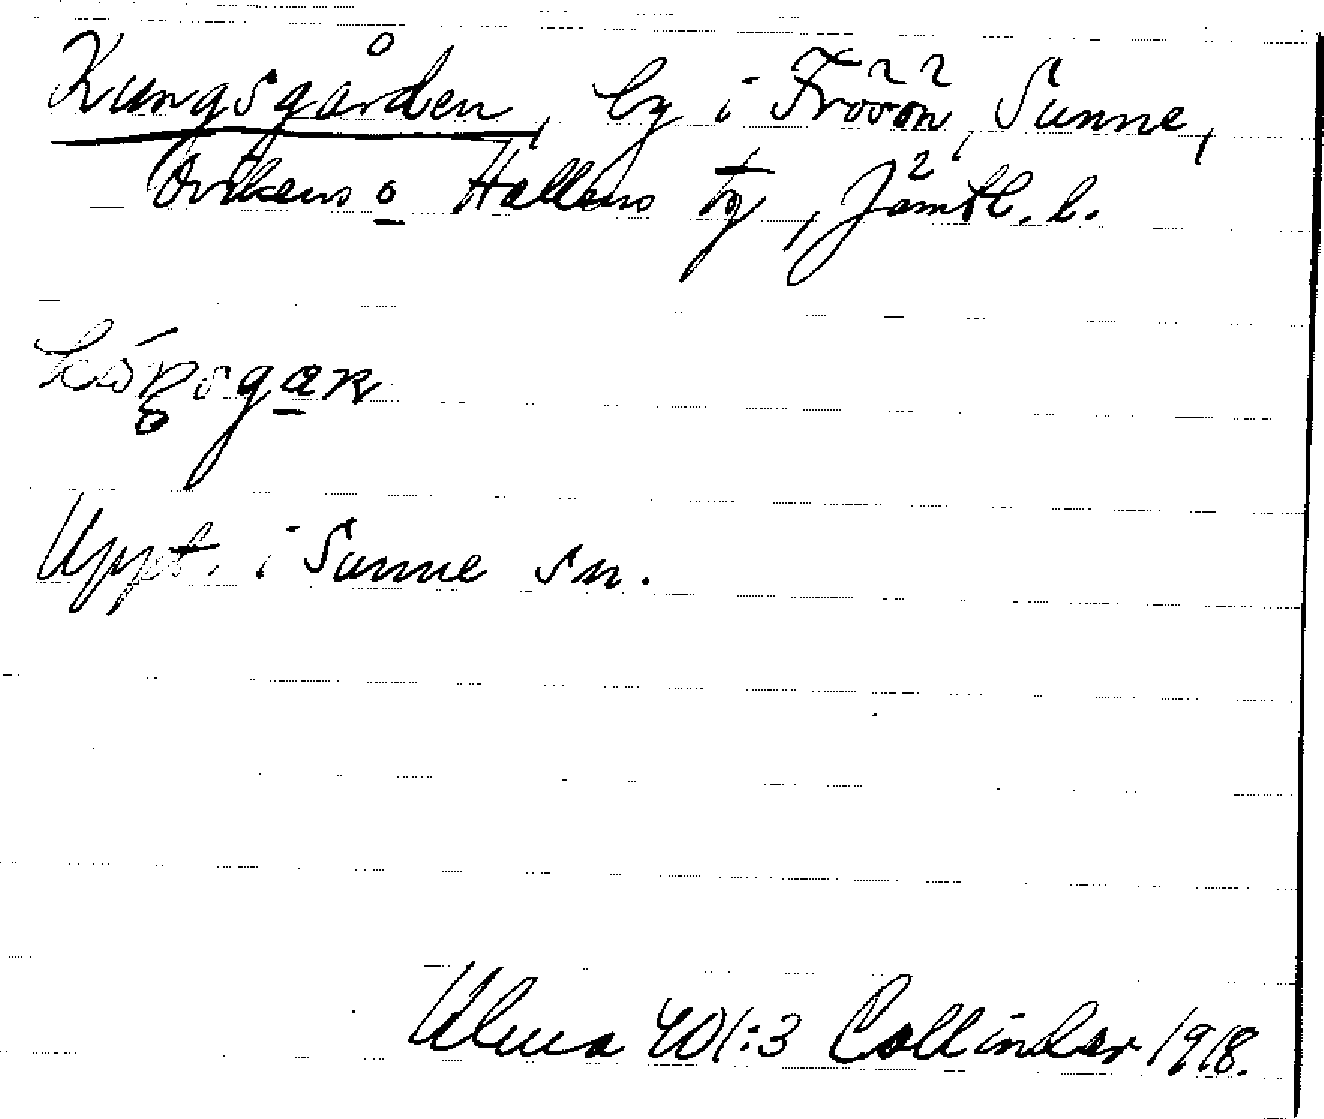 Kungsgården, by i Frösön, Sunne,
Ovikens o Hallens tg, Jämtl. l.
Uppt. i Sunne sn.
Ulma 401:3 Collinder 1918.